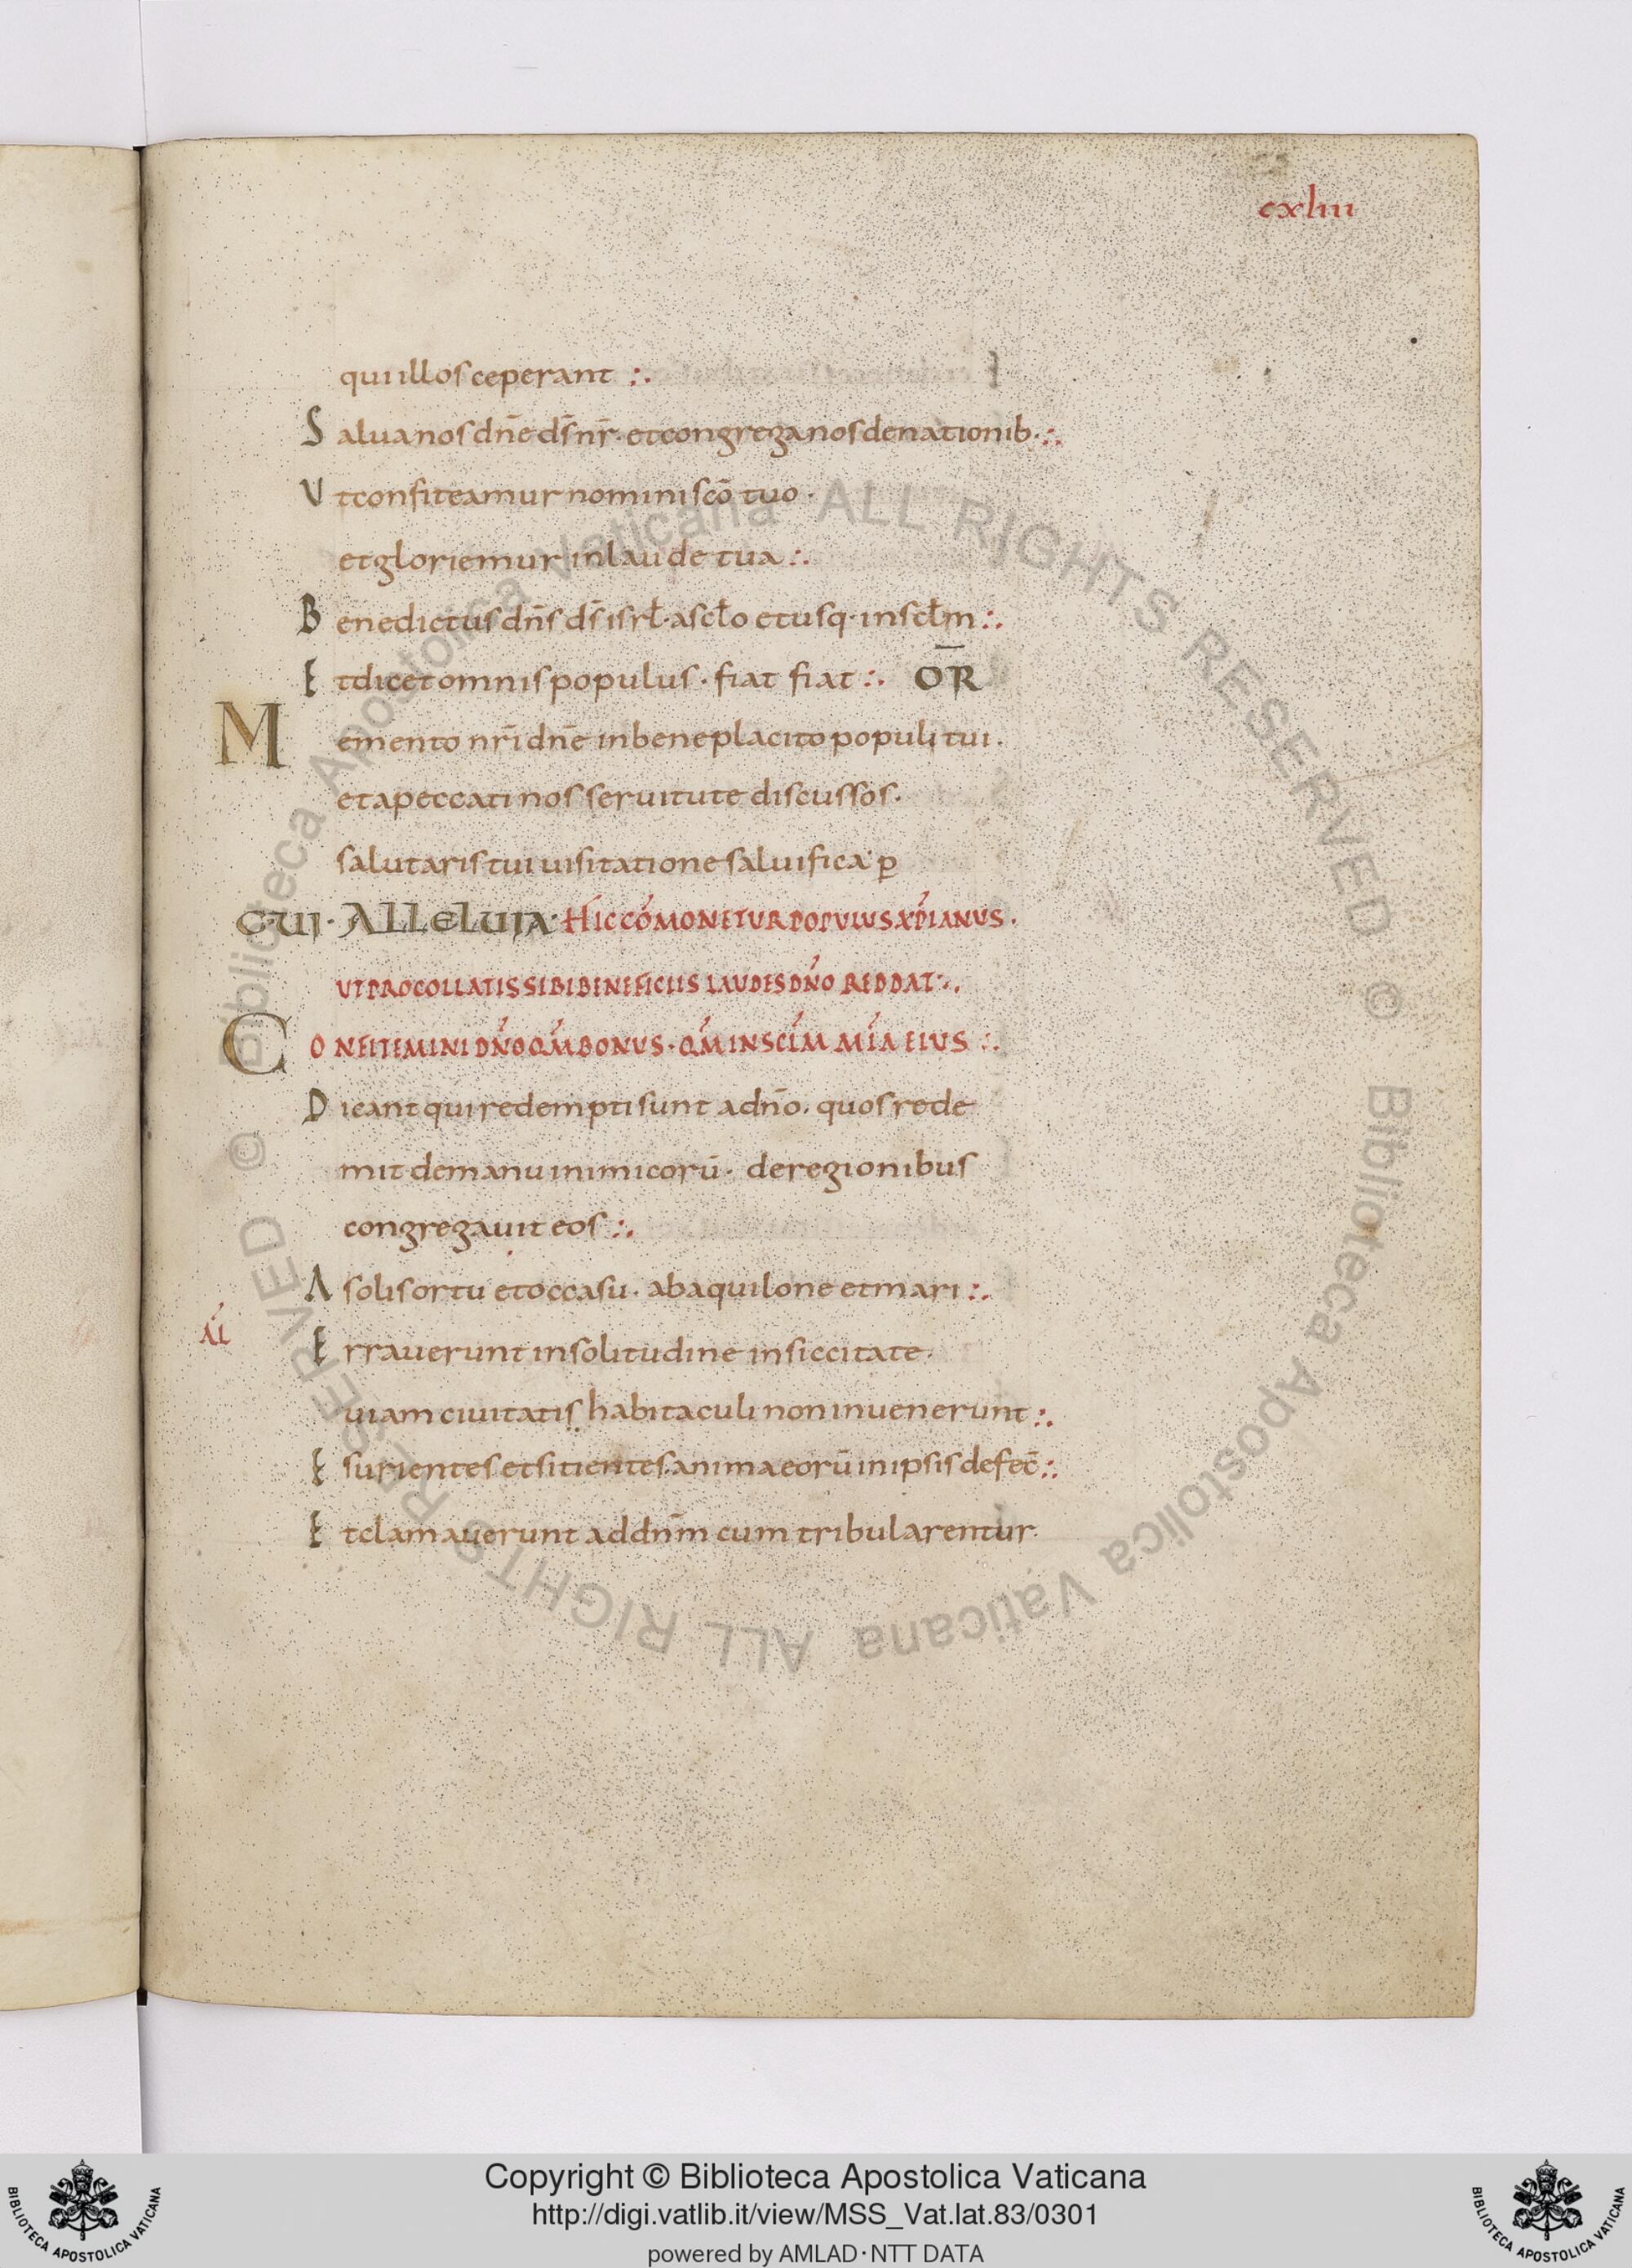 cxliii
qui illos ceperant :.
S alua nos dn̄e ds̄ nr̄ · et congrega nos de nationib· :.
V t confiteamur nomini scō tuo ·
et gloriemur in laude tua :.
B enedictus dn̄s ds̄ isrł · a scło et usq · in scłm :.
E t dicet omnis populus · fiat fiat :. OR̄
M emento nr̄i dn̄e in beneplacito populi tui ·
et a peccati nos seruitute discussos ·
salutaris tui uisitatione saluifica · ꝑ
C·UI · ALLELUIA · HIC CŌMONETUR POPULUS XP̄IANUS ·
UT PRO COLLATIS SIBI BENEFICIIS LAUDES DN̄O REDDAT :.
C ONFITEMINI DN̄O QM̄ BONUS · QM̄ IN SCLM̄ MĪA EIUS :.
D icant qui redempti sunt a dn̄o · quos rede
mit de manu inimicorū · de regionibus
congregauit eos :.
A solis ortu et occasu · ab aquilone et mari :.
AL̄
E rrauerunt in solitudine in siccitate ·
uiam ciuitatis habitaculi non inuenerunt :.
E surientes et sitientes · anima eorū in ipsis defec̄ :.
E t clamauerunt ad dnm̄ cum tribularentur
© Biblioteca Apostolica Vaticana ALL RIGHTS RESERVED © Biblioteca Apostolica Vaticana ALL RIGHTS RESERVED
Copyright © Biblioteca Apostolica Vaticana
http://digi.vatlib.it/view/MSS_Vat.lat.83/0301
powered by AMLAD·NTT DATA
BIBLIOTECA APOSTOLICA VATICANA
BIBLIOTECA APOSTOLICA VATICANA